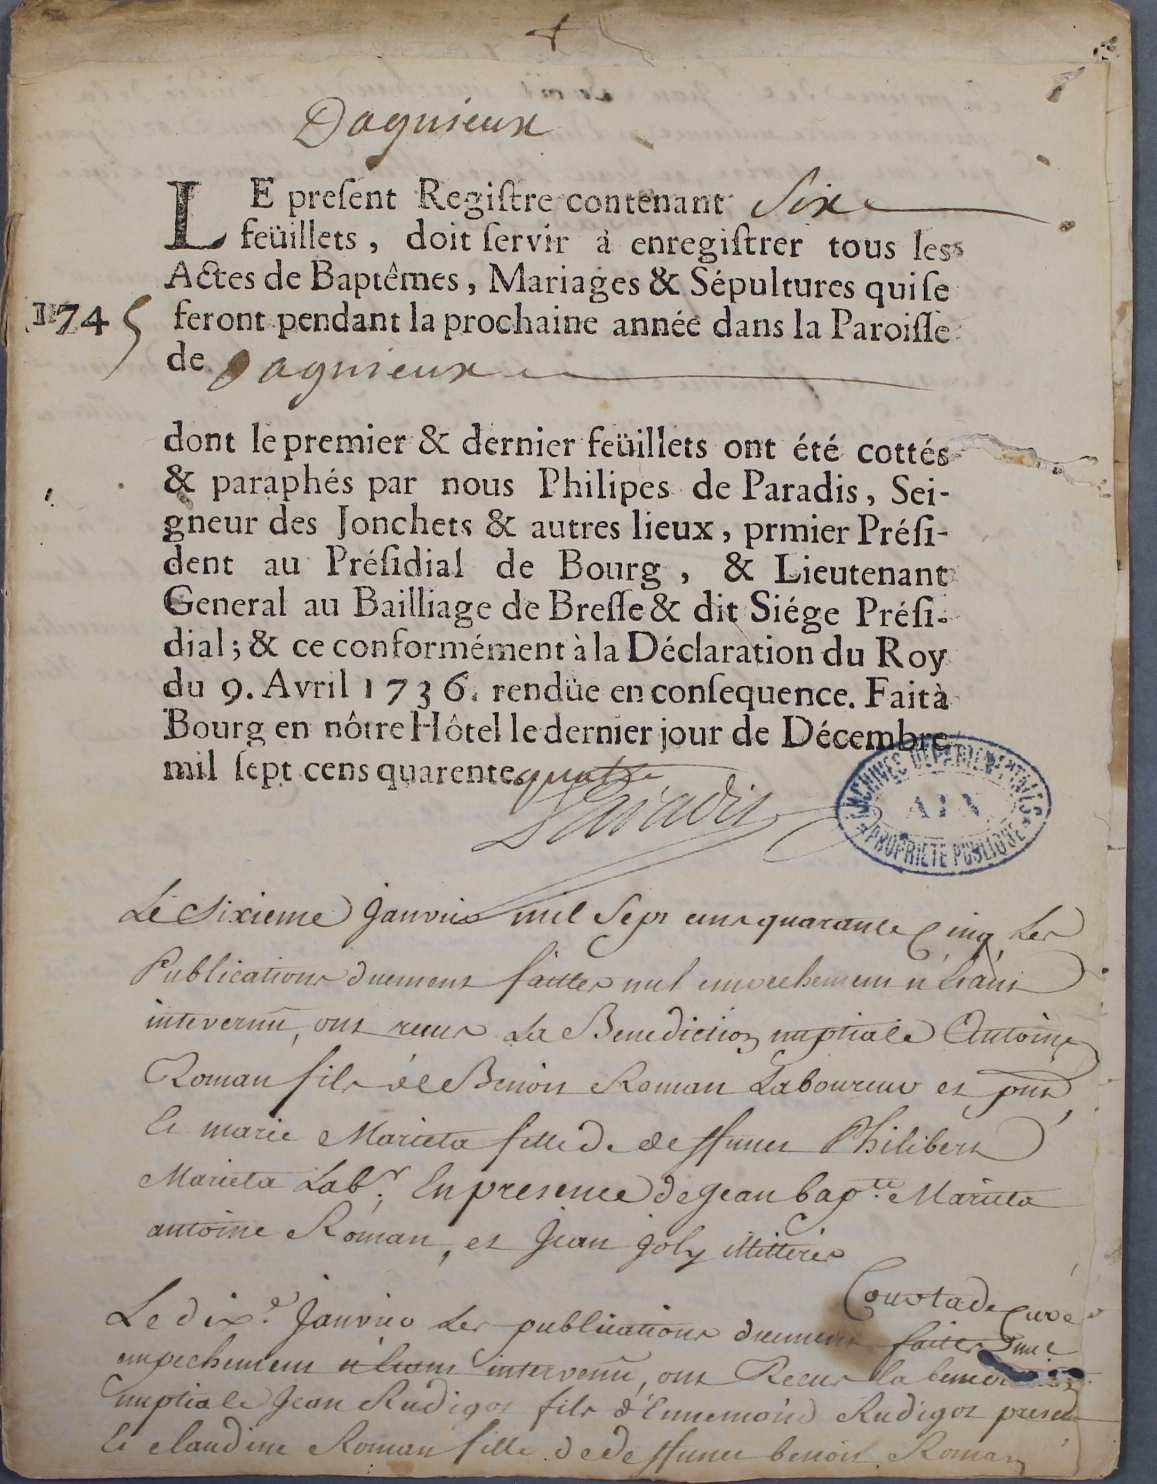 Dagnieux
LE preſent Regiſtre contenant Six
feüillets, doit ſervir à enregiſtrer tous les
Actes de Baptêmes, Mariages & Sépultures qui ſe
1745 feront pendant la prochaine année dans la Paroiſſe
de Dagnieux
dont le premier & dernier feüillets ont été cottés
& paraphés par nous Philipes de Paradis, Sei-
gneur des Jonchets & autres lieux, prmier Préſi-
dent au Préſidial de Bourg, & Lieutenant
General au Bailliage de Breſſe & dit Siége Préſi-
dial; & ce conformément à la Déclaration du Roy
du 9. Avril 1736. rendüe en conſequence. Fait à
Bourg en nôtre Hôtel le dernier jour de Décembre
mil ſept cens quarente quatre
Paradis
ARCHIVES DEPARTEMENTALES
AIN
PROPRIETE PUBLIQUE
Le Sixieme Janvier mil Sept cens quarante Cinq Les
Publications duement faittes nul empechement
intervenu, ont receu La Benediction nuptiale Antoine
Roman fils de Benoit Roman Laboureur et
Et marie Marieta fille de deffunct Philibert
Marieta Labr. En presence de Jean bapte Marieta
antoine Roman, et Jean Joly illitterés
Coustade Curé
Le dixe Janvier Les publications duement faittes nul
empechement intervenu, ont Receu la
nuptiale Jean Rudigoz fils d'Ennemond Rudigoz
Et claudine Roman fille de deffunct benoit Roman